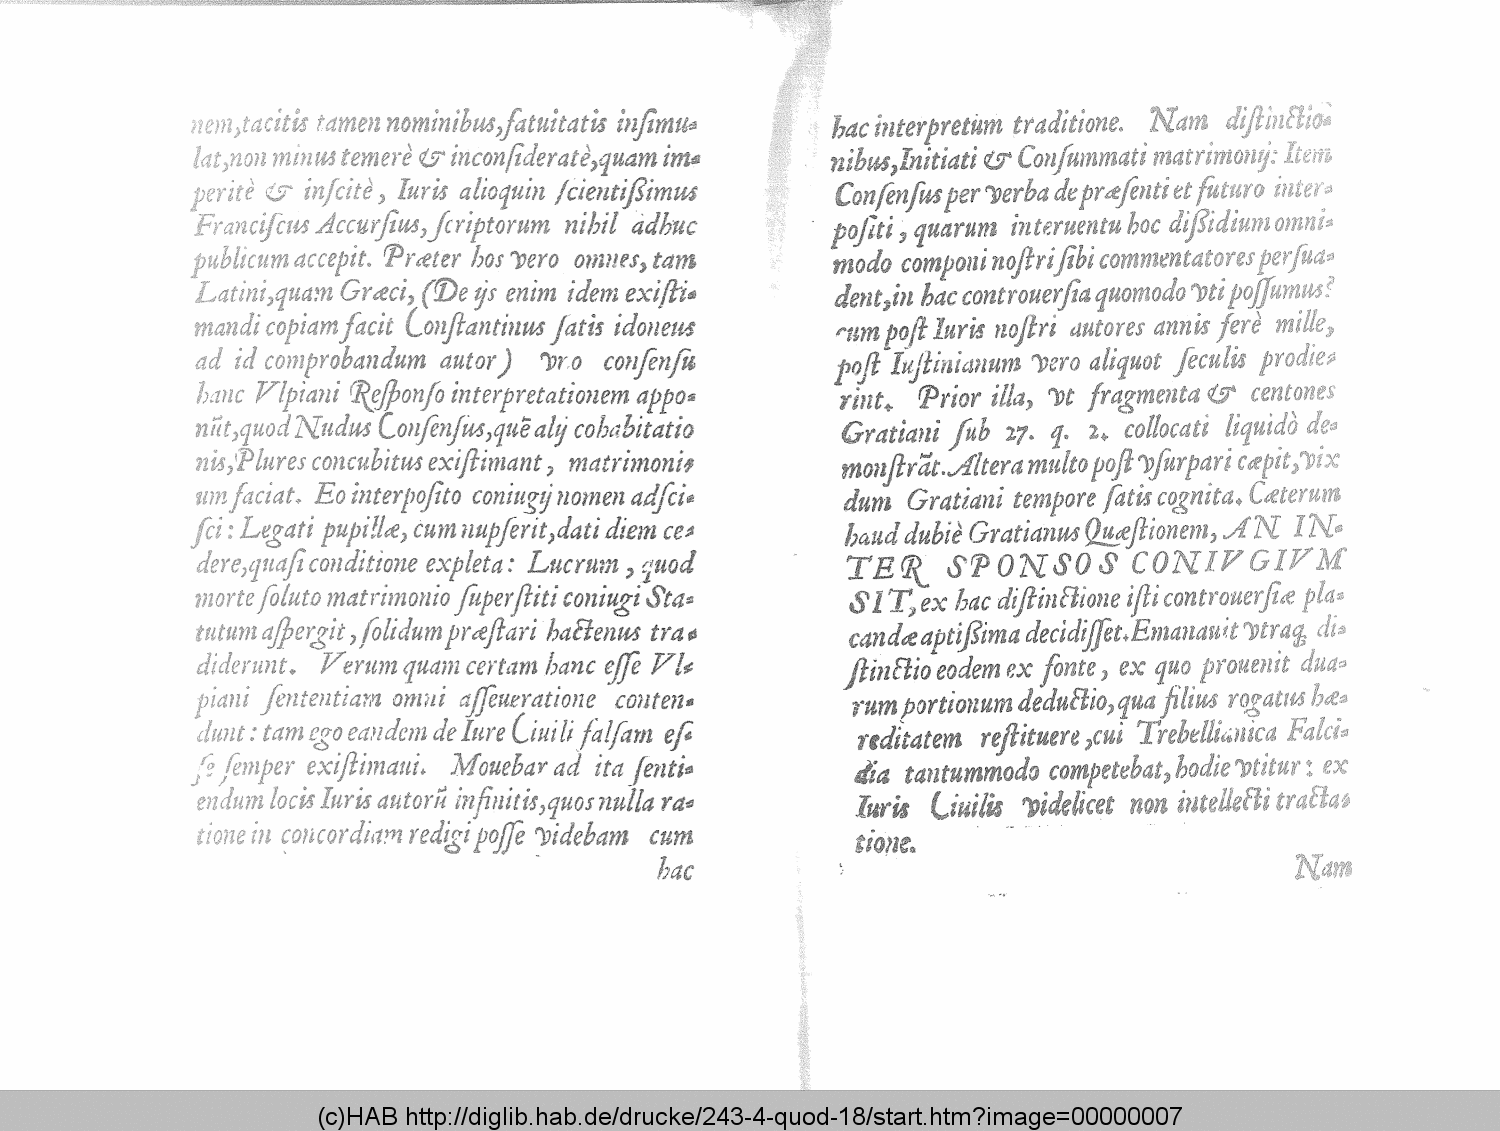 nem,tacitis tamen nominibus,fatuitatis inſimu-
lat,non minus temerè & inconſideratè,quam im-
peritè & inſcitè, Iuris alioquin ſcientißimus
Franciſcus Accurſius, ſcriptorum nihil adhuc
publicum accepit. Præter hos vero omnes, tam
Latini,quam Græci, (De ijs enim idem exiſti-
mandi copiam facit Conſtantinus ſatis idoneus
ad id comprobandum autor) pro conſenſu
hanc Vlpiani Reſponſo interpretationem appo-
nūt,quod Nudus Conſenſus,quē alij cohabitatio
nis, Plures concubitus exiſtimant, matrimoni-
um faciat. Eo interpoſito coniugij nomen adſci-
ſci: Legati pupillæ, cum nupſerit,dati diem ce-
dere,quaſi conditione expleta: Lucrum, quod
morte ſoluto matrimonio ſuperſtiti coniugi Sta-
tutum aſpergit, ſolidum præſtari hactenus tra-
diderunt. Verum quam certam hanc eſſe Vl-
piani ſententiam omni aſſeueratione conten-
dunt: tam ego eandem de Iure Ciuili falſam eſ-
ſe ſemper exiſtimaui. Mouebar ad ita ſenti-
endum locis Iuris autorū infinitis,quos nulla ra-
tione in concordiam redigi poſſe videbam cum
hac
hac interpretum traditione. Nam diſtinctio-
nibus,Initiati & Conſummati matrimonij: Item
Conſenſus per verba de præſenti et futuro inter-
poſiti, quarum interuentu hoc dißidium omni-
modo componi noſtri ſibi commentatores perſua-
dent,in hac controuerſia quomodo vti poſſumus?
cum poſt Iuris noſtri autores annis ferè mille,
poſt Iuſtinianum vero aliquot ſeculis prodie-
rint. Prior illa, vt fragmenta & centones
Gratiani ſub 27. q. 2. collocati liquidò de-
monſtrāt. Altera multo poſt vſurpari cæpit,vix
dum Gratiani tempore ſatis cognita. Cæterum
haud dubiè Gratianus Quæſtionem, AN IN-
TER SPONSOS CONIVGIVM
SIT,ex hac diſtinctione iſti controuerſiæ pla-
candæ aptißima decidiſſet. Emanauit vtraq; di-
ſtinctio eodem ex fonte, ex quo prouenit dua-
rum portionum deductio,qua filius rogatus hæ-
reditatem reſtituere,cui Trebellianica Falci-
dia tantummodo competebat,hodie vtitur: ex
Iuris Ciuilis videlicet non intellecti tracta-
tione.
Nam
(c)HAB http://diglib.hab.de/drucke/243-4-quod-18/start.htm?image=00000007